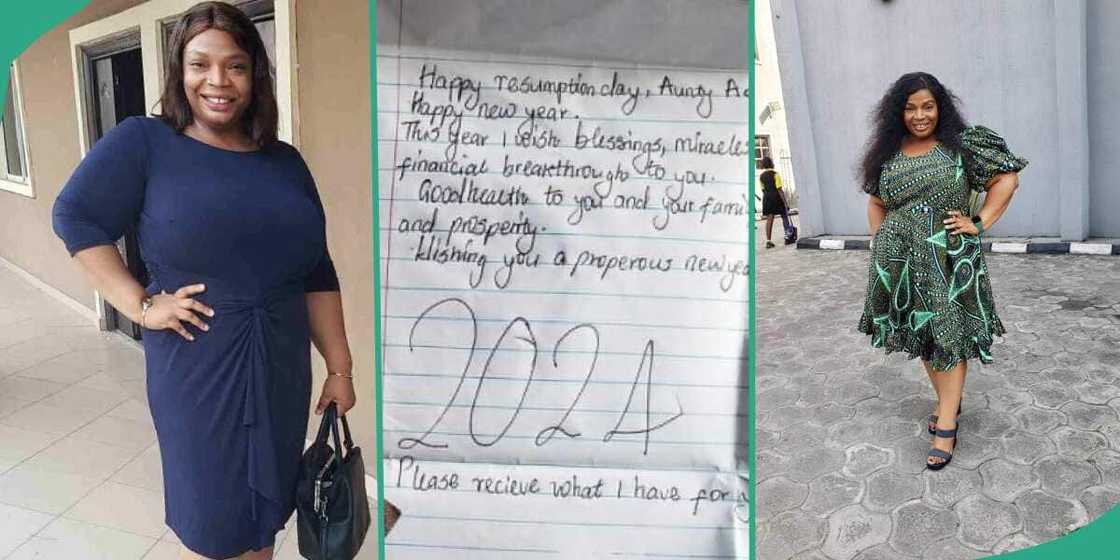 Happy resumption day, Aunty
Happy new year.
This Year I wish blessings, miracles
financial breakthrough to you.
Goodhealth to you and your famil
and prosperity.
Wishing you a properous new yea
2024
Please recieve what I have for y